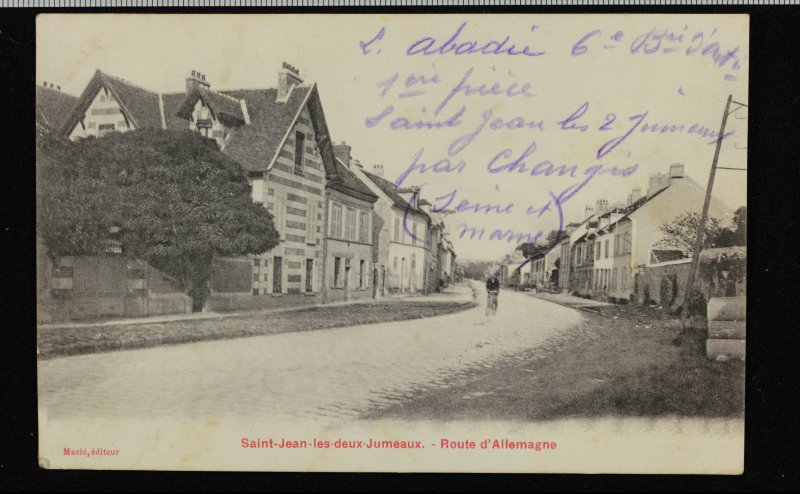 L. abadie 6e Brie d'art
1ère pièce
Saint Jean les 2 Jumeaux
par Changis
(Seine et
marne)
Saint-Jean-les-deux-Jumeaux. - Route d'Allemagne
Maslé, éditeur